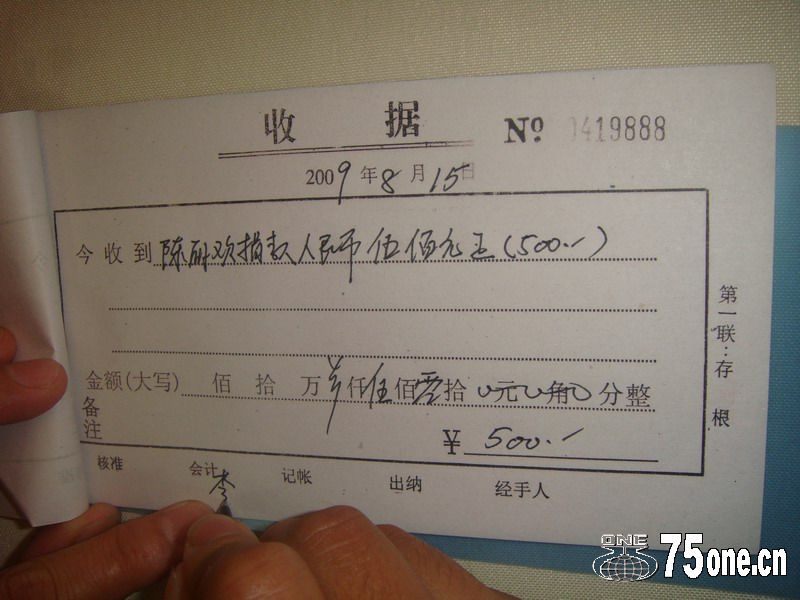 收 据 Nº 0419888
2009年8月15日
今收到 陈丽欢捐款人民币伍佰元正(500.-)
金额(大写) 佰 拾 万 仟伍佰零拾0元0角0分整
备注
¥ 500.-
核准 会计 李 记帐 出纳 经手人
第一联:存根
ONE 75one.cn